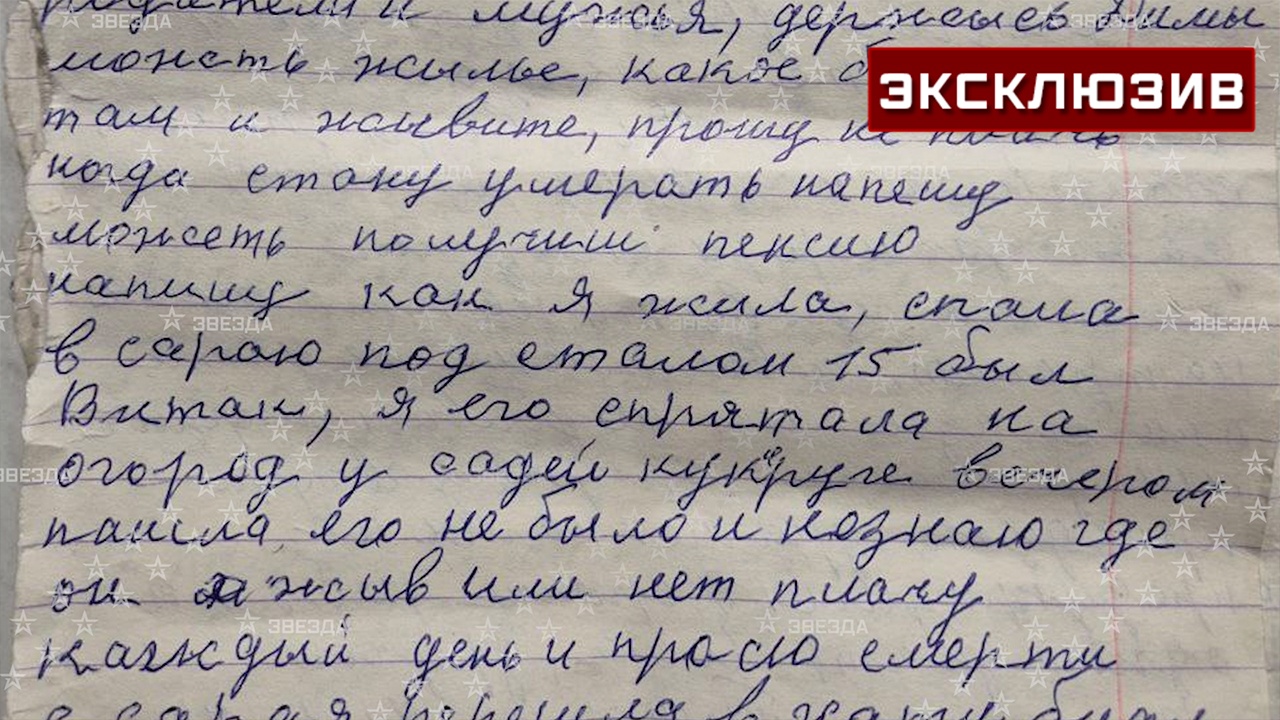 мужья, держысь Димы
можеть жылье, какое
ЭКСКЛЮЗИВ
там и жывите, прошу не
когда стану умерать напешу
можеть получиш пенсию
напишу как я жила, спала
в сараю под сталом 15 был
Витак, я его спрятала на
огород у садей кукруге вечером
пашла его не было и незнаю где
он жыв или нет плачу
каждый день и прошу смерти
ЗВЕЗДА